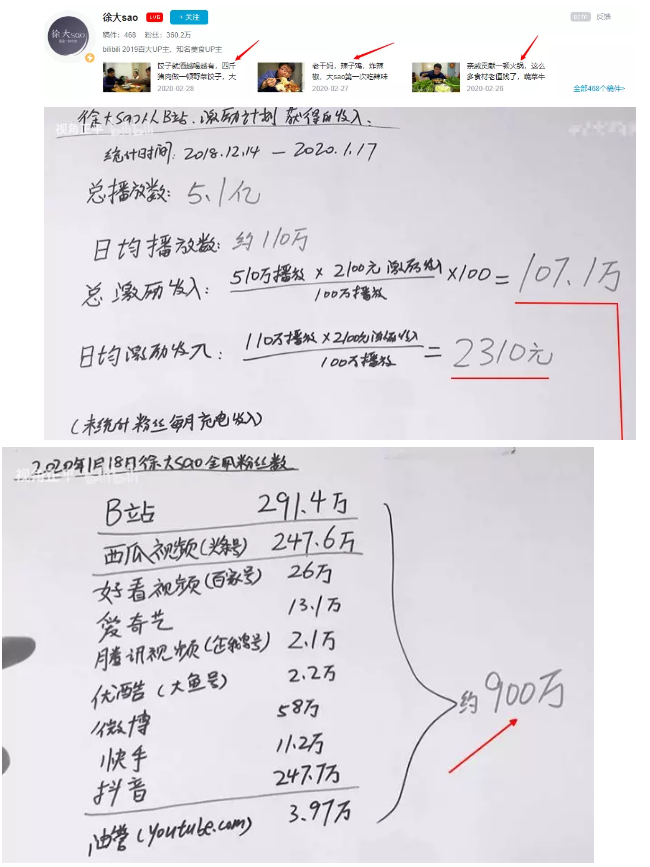 徐大sao LIVE + 关注
稿件：468 粉丝：360.2万
bilibili 2019百大UP主、知名美食UP主
BETA 反馈
饺子就酒越喝越有，四斤
猪肉做一顿野菜饺子，大
2020-02-28
老干妈，辣子鸡，炸辣
椒，大sao第一次吃辣味
2020-02-27
亲戚贡献一顿火锅，这么
多食材老值钱了，蔬菜牛
2020-02-26
全部468个稿件>
徐大sao
徐大sao从B站、激励计划获得的收入、
统计时间：2018.12.14 — 2020.1.17
总播放数：5.1亿
日均播放数：约110万
总激励收入：510万播放 × 2100元激励收入 / 100万播放 ×100 = 107.1万
日均激励收入：110万播放×2100元激励收入 / 100万播放 = 2310元
(未统计粉丝每月充电收入)
2020年1月18日徐大sao全网粉丝数
B站 291.4万
西瓜视频(头条号) 247.6万
好看视频(百家号) 26万
爱奇艺 13.1万
腾讯视频(企鹅号) 2.1万
优酷(大鱼号) 2.2万
微博 58万
快手 11.2万
抖音 247.7万
油管(youtube.com) 3.97万
约900万